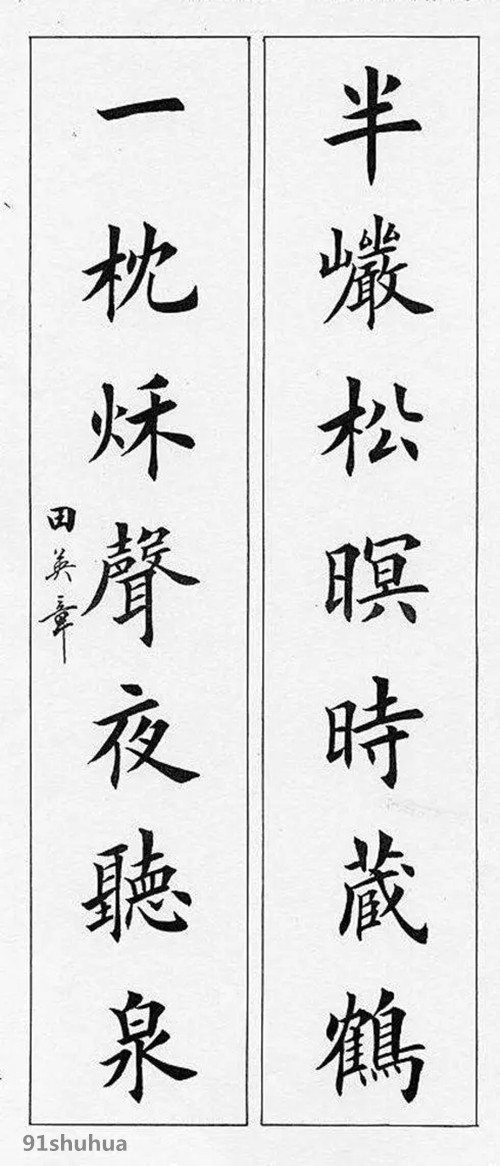 半巖松暝時蔵鶴
一枕秌聲夜聽泉
田英章
91shuhua